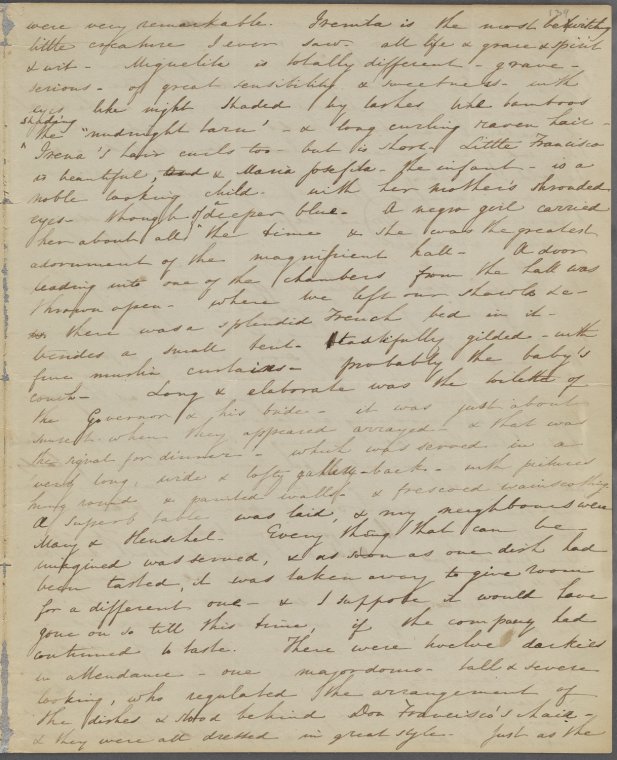 139
were very remarkable. Irenita is the most bewitching
little creature I ever saw - all life & grace & spirit
& wit - Miguelito is totally different - grave -
serious - of great sensibility & sweetness - with
eyes like night shaded by lashes like bamboos
shading
the "midnight tarn' - & long curling raven hair -
"Irena's hair curls too - but is short - Little Francisco
is beautiful, & Maria Josefita - the infant - is a
noble looking child - with her mother's shrouded
eyes - though of a deeper blue - A negro girl carried
her about all the time & she was the greatest
adornment of the magnificent hall - A door
leading into one of the chambers from the hall was
thrown open - where we left our shawls &c -
there was a splendid French bed in it -
besides a small tent - tastifully gilded - with
fine muslin curtains - probably the baby's
couch - Long & elaborate was the toilette of
the Governor & his bride - it was just about
sunset when they appeared arrayed - & that was
the signal for dinner - which was served in a
very long, wide & lofty gallery - back - with pictures
hung round & painted walls - & frescoed wainscoting
A superb table was laid, & my neighbours were
Mary & Henschel. Every thing that can be
imagined was served, & as soon as one dish had
been tasted, it was taken away to give room
for a different one - & I suppose it would have
gone on so till this time, if the company had
continued to taste. There were twelve darkies
in attendance - one majordomo - tall & severe
looking, who regulated the arrangement of
the dishes & stood behind Don Francisco's chair -
& they were all dressed in great style. Just as the